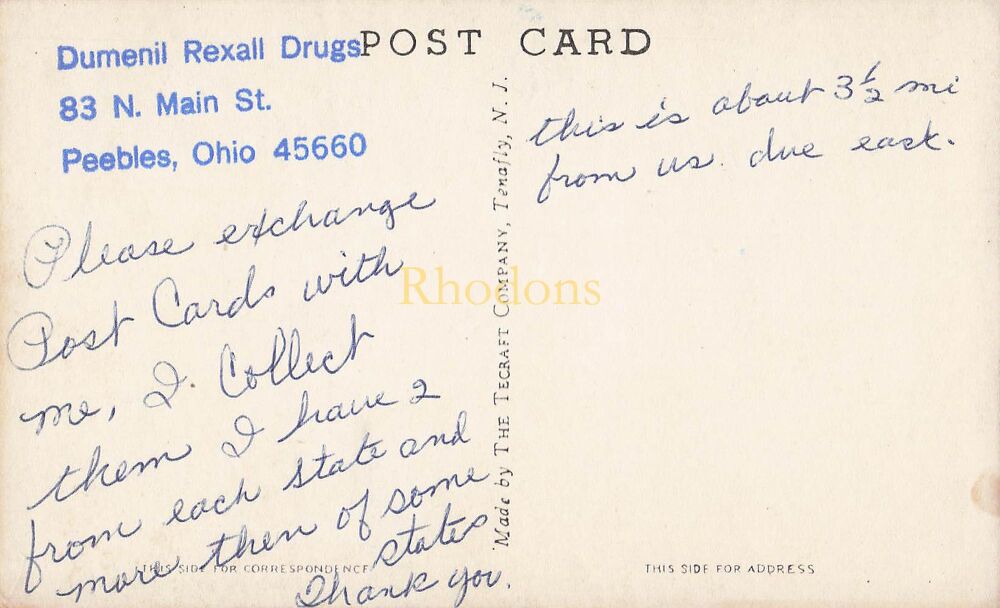 Dumenil Rexall Drugs
83 N. Main St.
Peebles, Ohio 45660
POST CARD
Please exchange
Post Cards with
me, I. Collect
them I have 2
from each state and
more then of some
states
Thank you.
this is about 3½ mi
from us. due east.
Made by THE TECRAFT COMPANY, Tenafly, N. J.
THIS SIDE FOR CORRESPONDENCE
THIS SIDE FOR ADDRESS
Rhodons